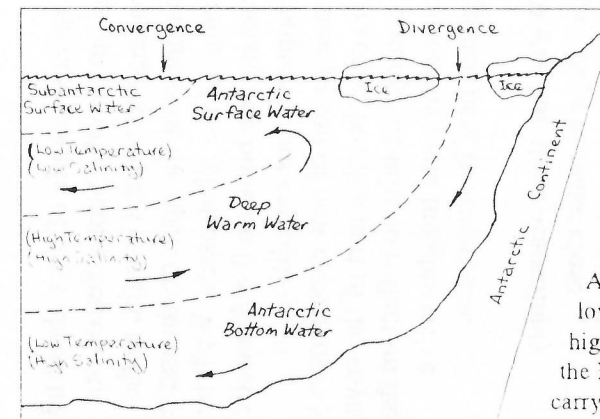 Convergence
Divergence
Subantarctic
Surface Water
Antarctic
Surface Water
Ice
Ice
(Low Temperature)
(Low Salinity)
Deep
Warm Water
(High Temperature)
(High Salinity)
Antarctic
Bottom Water
(Low Temperature)
(High Salinity)
Antarctic Continent
A
lov
hig
the
carry